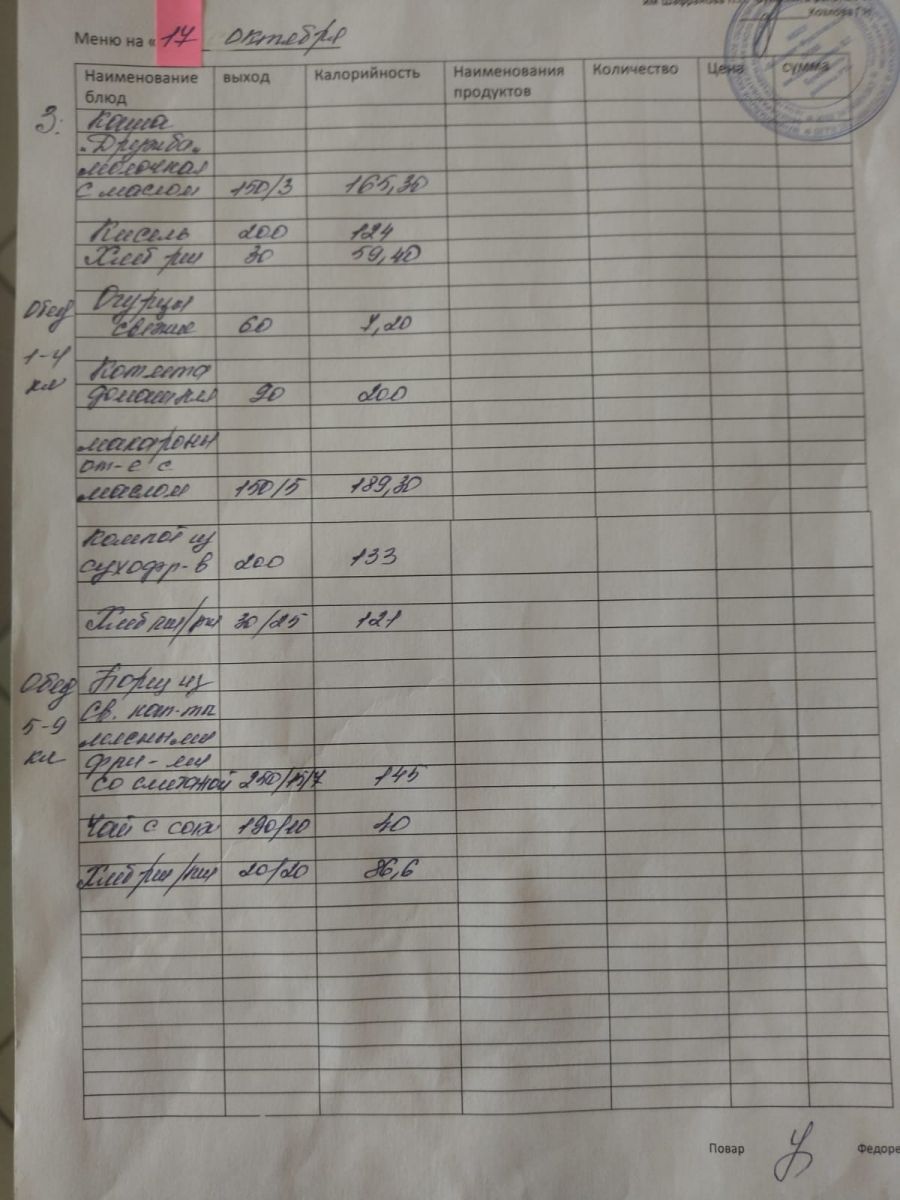 им Шафранова П.Е.
Козлова Г.И.
Меню на «17 октября
Наименование блюд выход Калорийность Наименования продуктов Количество Цена сумма
З. Каша
"Дружба"
молочная
с маслом 150/3 165,30
Кисель 200 124
Хлеб рж 30 59,40
Обед Огурцы
свежие 60 7,20
1-4
кл Котлета
домашняя 90 200
макароны
от-е с
маслом 150/5 189,30
Компот из
сухофр-в 200 133
Хлеб пш/рж 30/25 121
Обед Борщ из
св. кап-ты
5-9 мясными
кл фри-ми
со сметаной 250/15/7 145
Чай с сах 190/10 40
Хлеб рж/пш 20/20 86,6
Повар Федоре